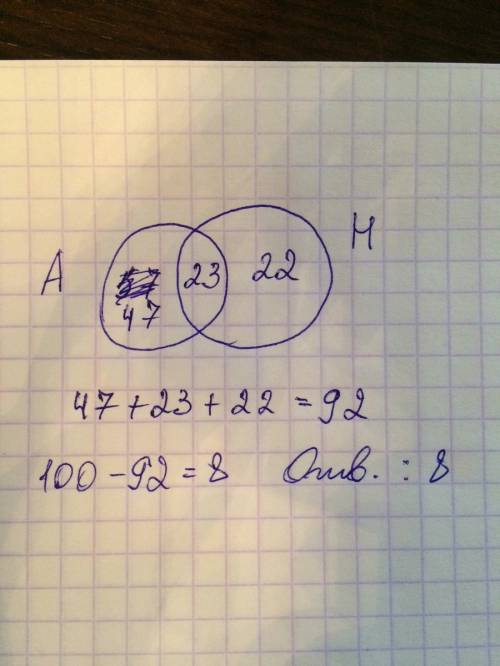 Н
А 23 22
47
47 + 23 + 22 = 92
100 - 92 = 8 Отв. : 8